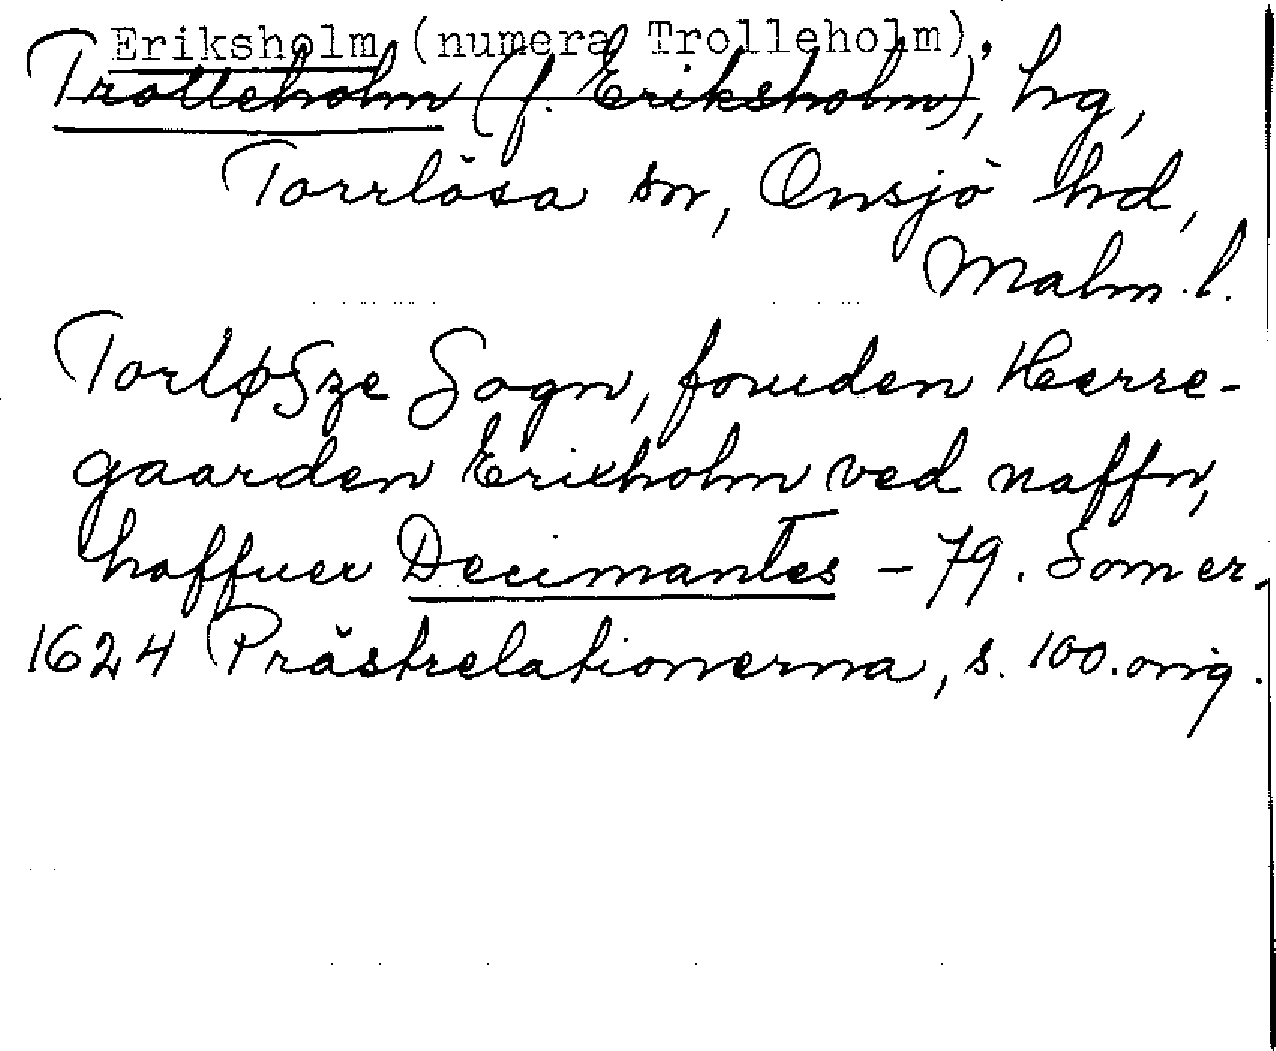 Eriksholm (numera Trolleholm),
Trolleholm (f. Eriksholm), hg,
Torrlösa sn, Onsjö hd,
Malm. l.
TorløSze Sogn, foruden Herre-
gaarden Erixholm ved naffn,
haffuer Decimantes – 79. Som er.
1624 Prästrelationerna, s. 100. orig.